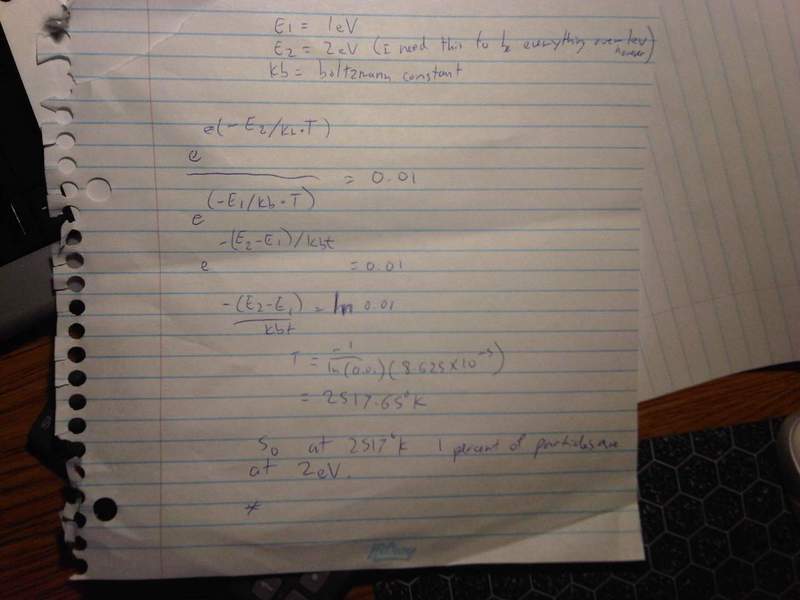 E1 = 1eV
E2 = 2eV (I need this to be everything over 1ev
kb = boltzmann constant
e(-E2/kb·T)
e
= 0.01
(-E1/kb·T)
e
-(E2-E1)/kbt
e = 0.01
-(E2-E1) = ln 0.01
kbt
T = -1
ln(0.01)(8.625×10^-5)
= 2517.65°K
So at 2517°K 1 percent of particles are
at 2eV.
*